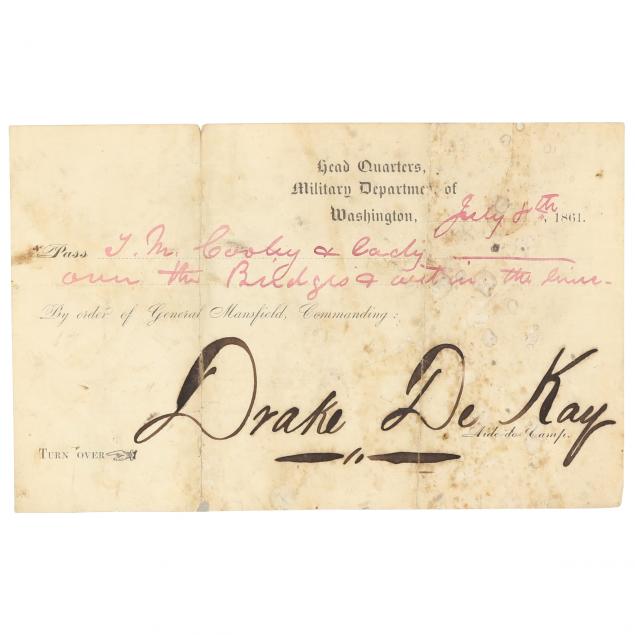 Head Quarters,
Military Departme of
Washington, July 8th, 1861.
Pass T. M. Cooley & lady
over the Bridges & within the lines.
By order of General Mansfield, Commanding:
Drake De Kay
Aide-de-Camp.
TURN OVER